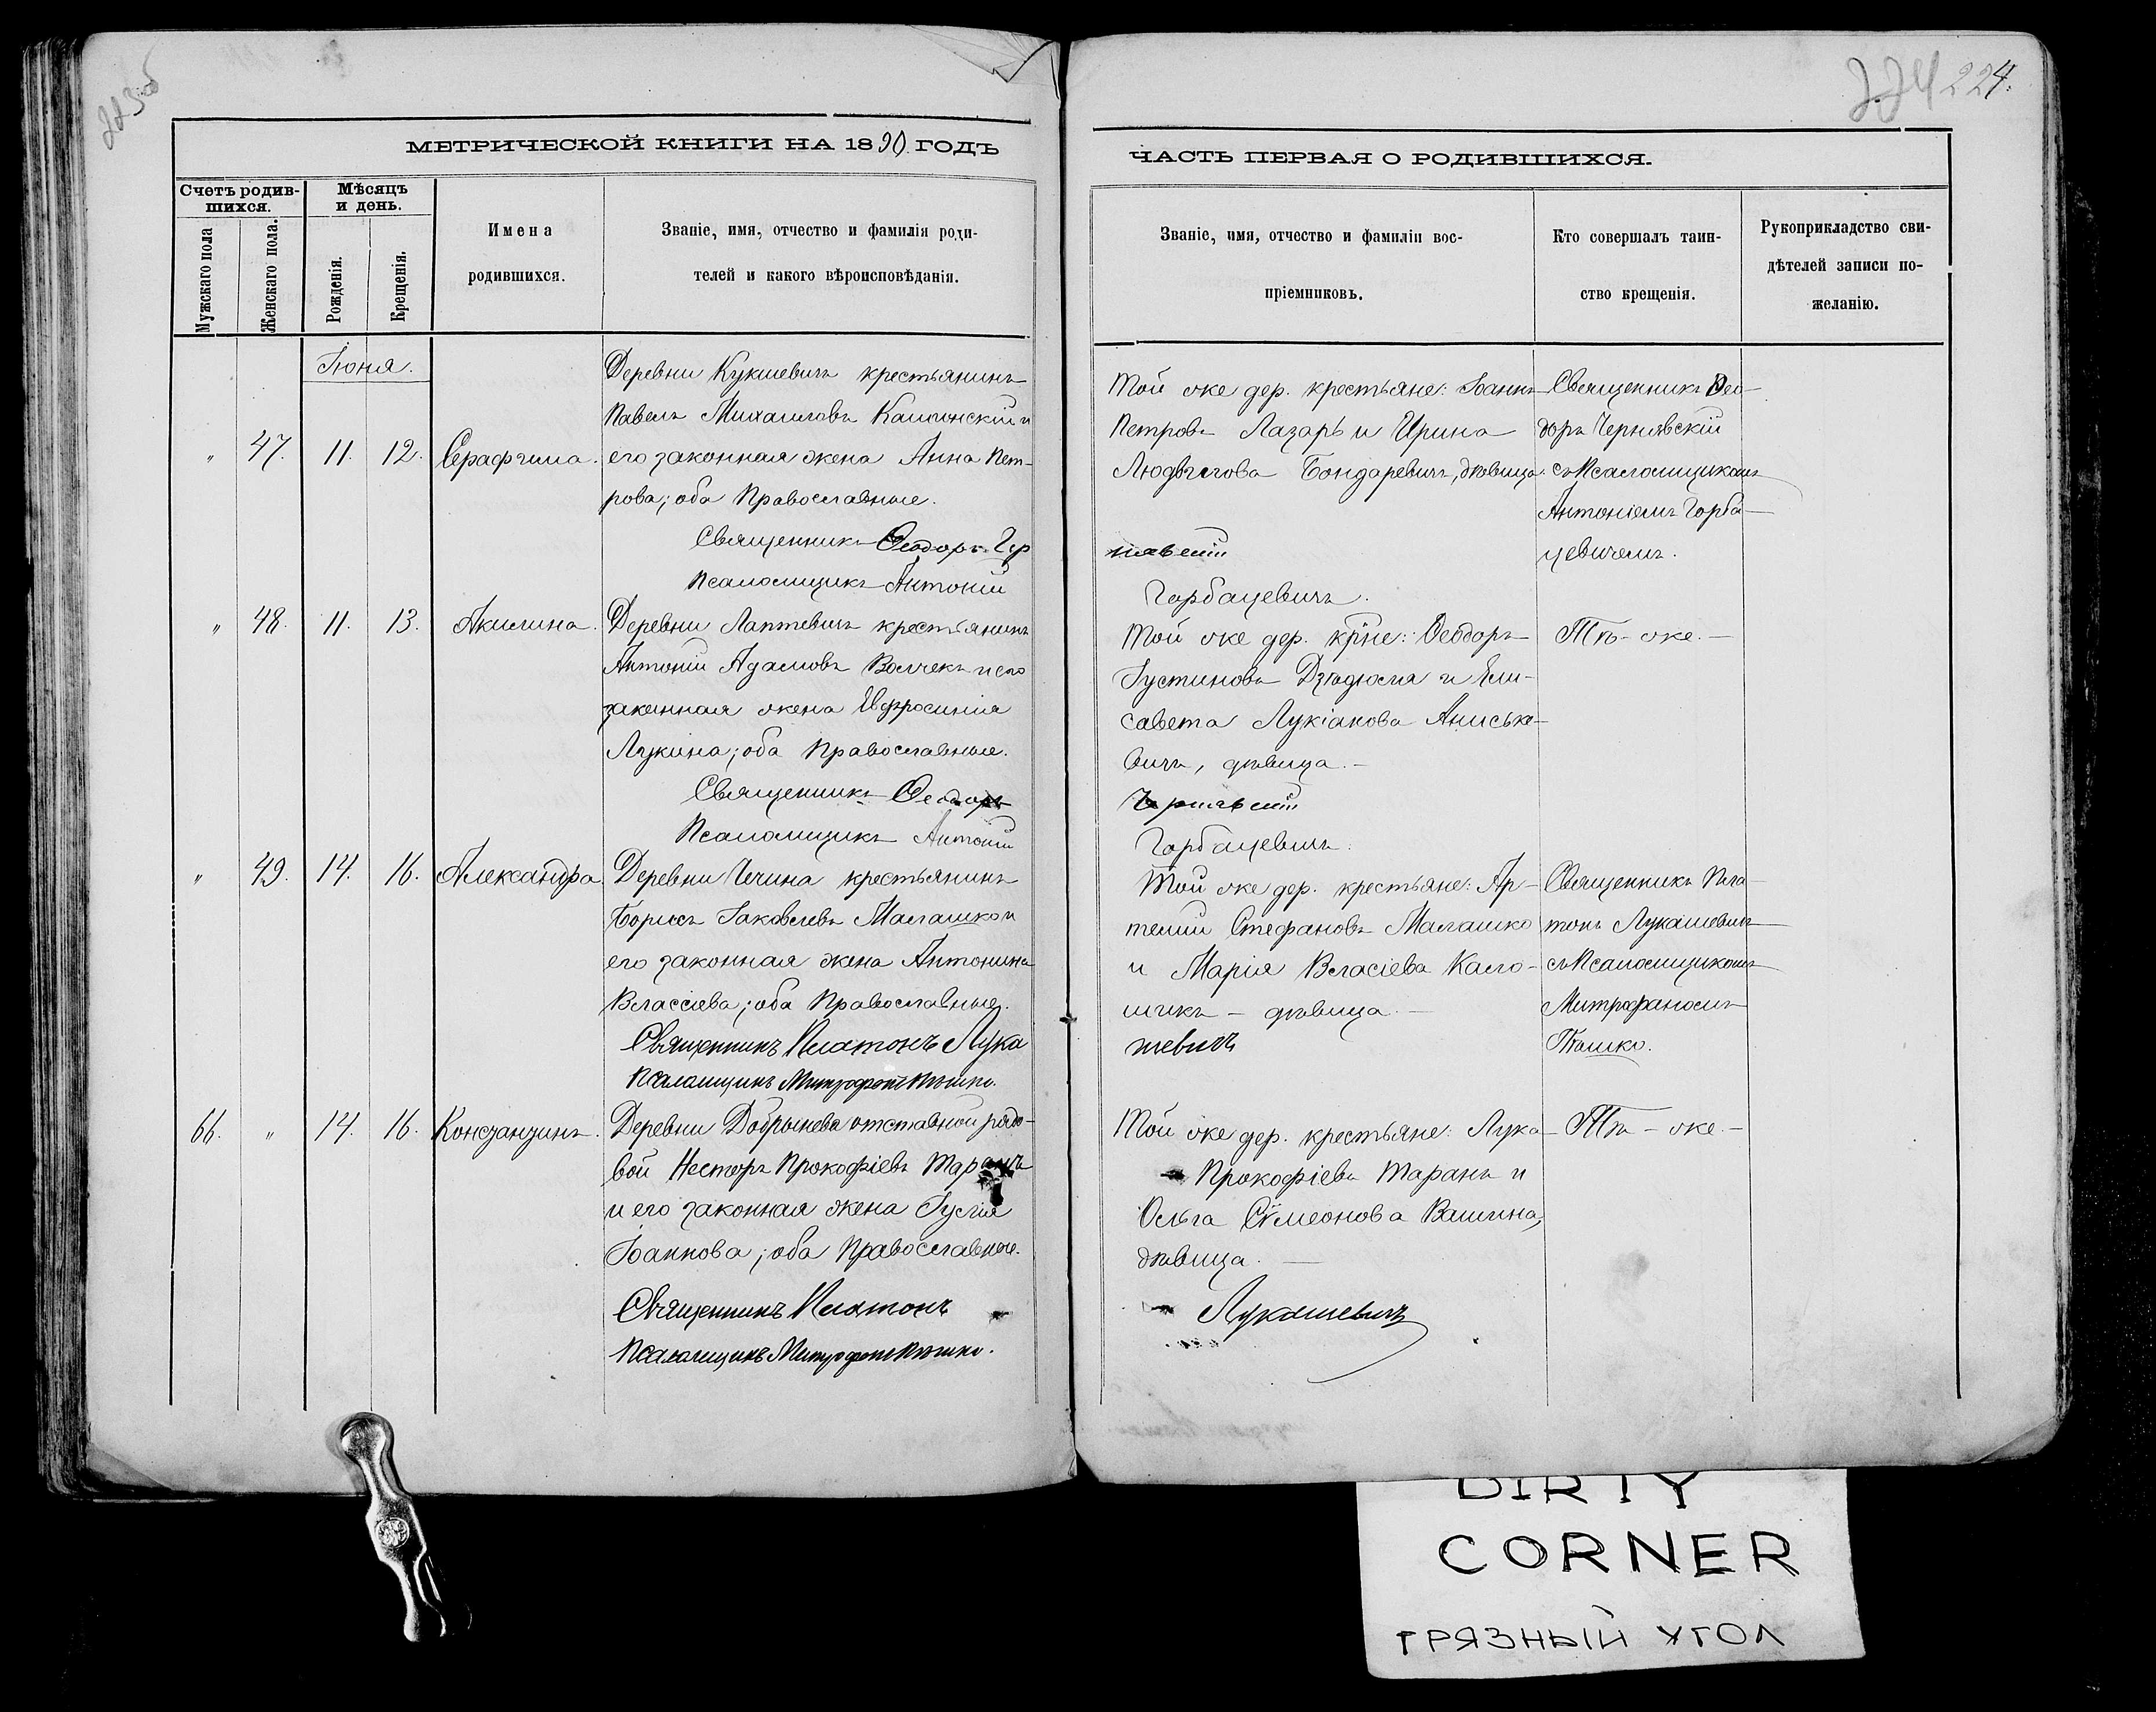 223об
224 224.
МЕТРИЧЕСКОЙ КНИГИ НА 1890 ГОДЪ
Счетъ родив-
шихся.
Мужскаго пола
Женскаго пола.
Мѣсяцъ
и день.
Рожденія.
Крещенія.
Имена
родившихся.
Званіе, имя, отчество и фамилія роди-
телей и какого вѣроисповѣданія.
Іюня.
" 47. 11. 12. Серафима.
Деревни Кукшевичъ крестьянинъ
Павелъ Михаиловъ и
его законная жена Анна Пет-
рова; оба Православные.
Священникъ Ѳеодоръ Чер
Псаломщикъ Антоній
" 48. 11. 13. Акилина.
Деревни Лаптевичъ крестьянинъ
Антоній Адамовъ Волчекъ и его
законная жена Евфросинія
Лукина; оба Православные.
Священникъ Ѳеодоръ
Псаломщикъ Антоній
" 49. 14. 16. Александра.
Деревни Чечина крестьянинъ
Борисъ Іаковлевъ Малашко и
его законная жена Антонина
Власіева; оба Православные.
Священникъ Платонъ Лука
Псаломщикъ Митрофанъ Тѣшко.
66. " 14. 16. Константинъ.
Деревни Добрынева отставной рядо-
вой Несторъ Прокофіевъ Таранъ
и его законная жена Іулія
Іоаннова; оба Православные.
Священникъ Платонъ
Псаломщикъ Митрофанъ Тѣшко.
ЧАСТЬ ПЕРВАЯ О РОДИВШИХСЯ.
Званіе, имя, отчество и фамиліи вос-
пріемниковъ.
Кто совершалъ таин-
ство крещенія.
Рукоприкладство сви-
дѣтелей записи по-
желанію.
Той же дер. крестьяне: Іоаннъ
Петровъ Лазарь и Ирина
Людвигова Бондаревичъ, дѣвица.
нявскій
Горбацевичъ.
Священникъ Ѳео-
доръ Чернявскій
съ Псаломщикомъ
Антоніемъ Горба-
цевичемъ.
Той же дер. кр̃не: Ѳеодоръ
Іустиновъ Дзюдюля и Ели-
савета Лукіанова Аниське-
вичъ, дѣвица. —
Чернявскій
Горбацевичъ.
Тѣ - же. —
Той же дер. крестьяне: Ар-
темій Стефановъ Малашко
и Марія Власіева Кало-
шикъ — дѣвица. —
шевичъ
Священникъ Пла-
тонъ Лукашевичъ
съ Псаломщикомъ
Митрофаномъ
Тѣшко.
Той же дер. крестьяне: Лука
Прокофіевъ Таранъ и
Ольга Сѵмеонова Вашина,
дѣвица. —
Лукашевичъ
Тѣ - же. —
DIRTY
CORNER
ГРЯЗНЫЙ УГОЛ